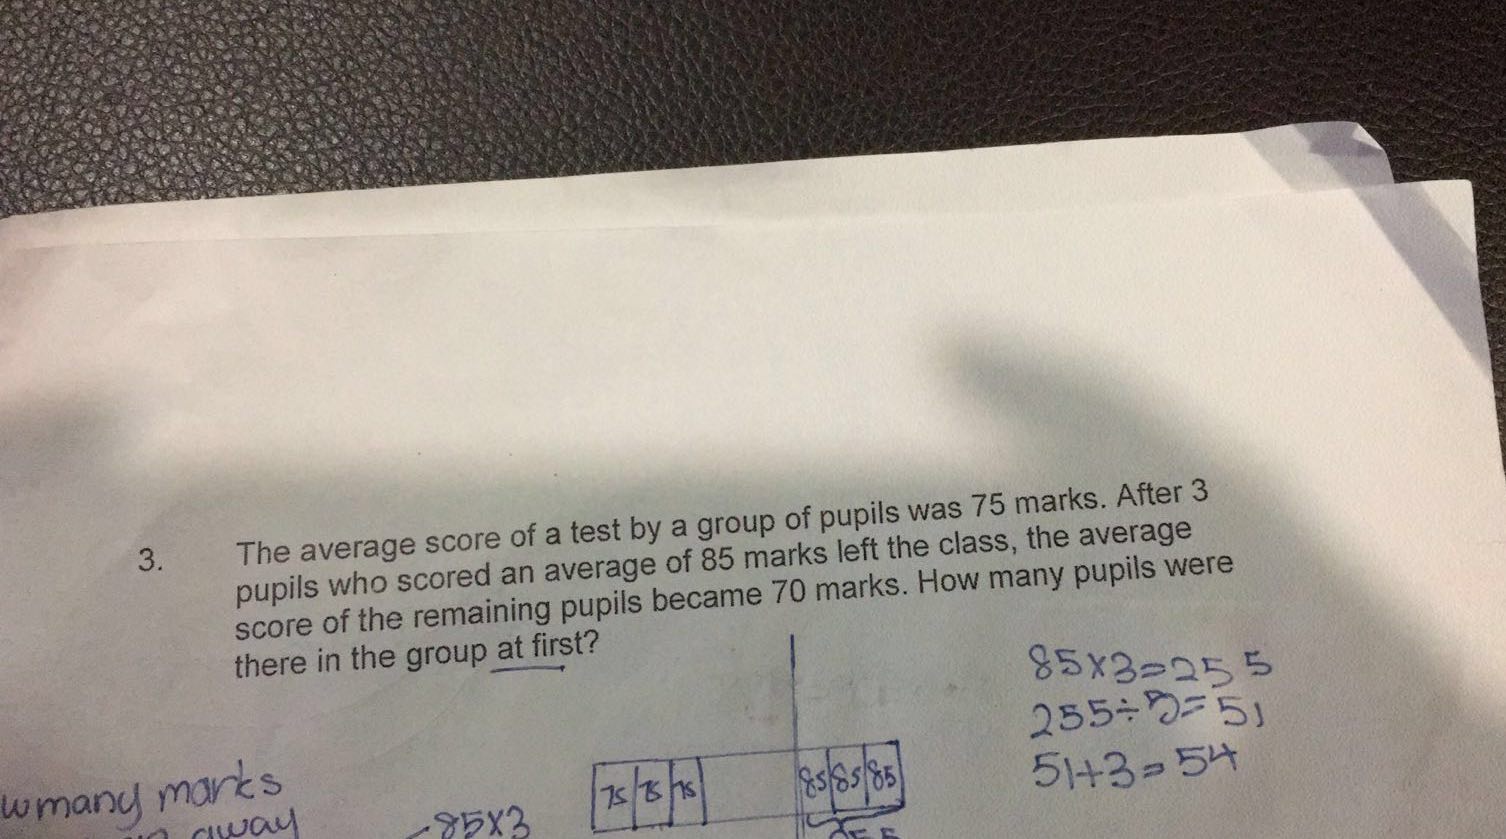 3. The average score of a test by a group of pupils was 75 marks. After 3
pupils who scored an average of 85 marks left the class, the average
score of the remaining pupils became 70 marks. How many pupils were
there in the group at first?
85x3=255
255÷5=51
51+3=54
75 75 75 85 85 85
wmany marks
-85x3
away